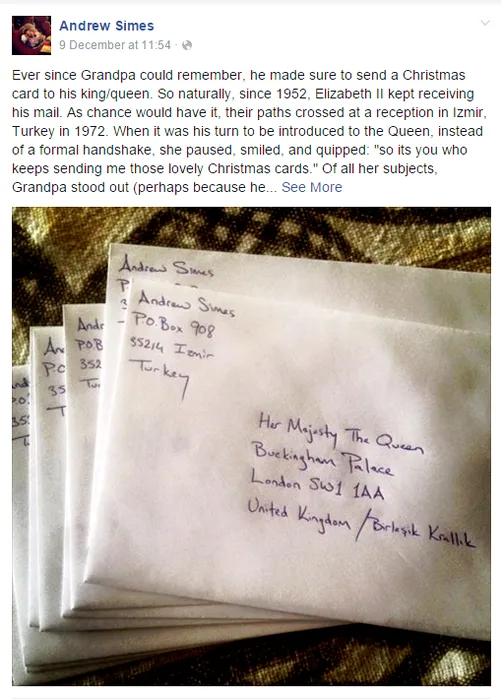 Andrew Simes
9 December at 11:54 ·
Ever since Grandpa could remember, he made sure to send a Christmas
card to his king/queen. So naturally, since 1952, Elizabeth II kept receiving
his mail. As chance would have it, their paths crossed at a reception in Izmir,
Turkey in 1972. When it was his turn to be introduced to the Queen, instead
of a formal handshake, she paused, smiled, and quipped: "so its you who
keeps sending me those lovely Christmas cards." Of all her subjects,
Grandpa stood out (perhaps because he... See More
Andrew Simes
P
3
Andrew Simes
P.O. Box 908
35214 Izmir
Turkey
Her Majesty The Queen
Buckingham Palace
London SW1 1AA
United Kingdom / Birleşik Krallık
Andr
P.O.B
352
Tu
An
P.O
35
T